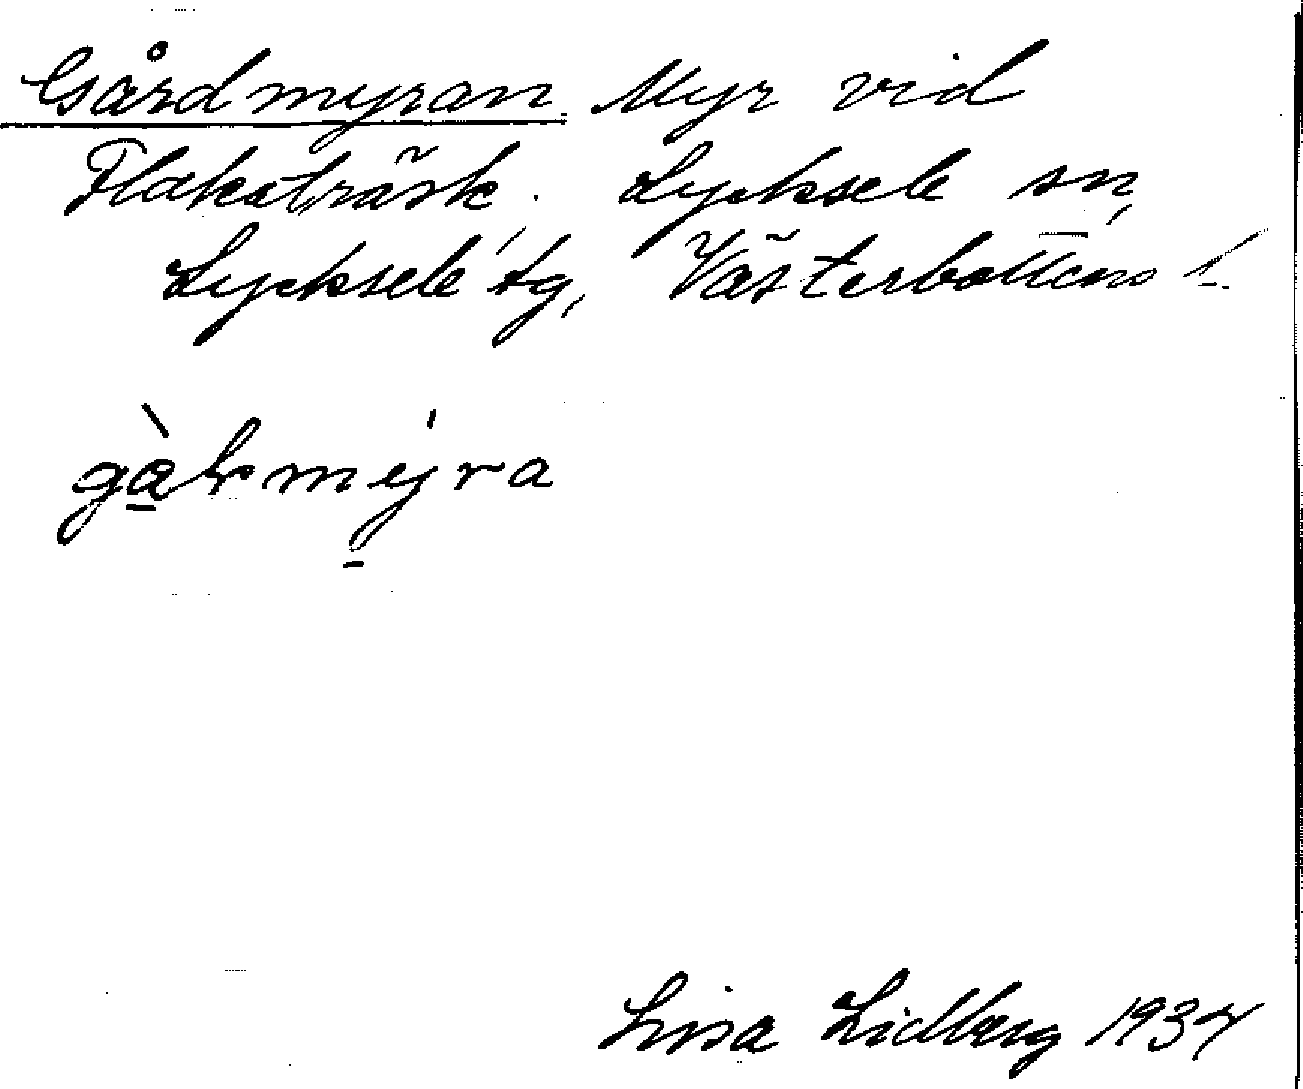 Gårdmyran Myr vid
Flakaträsk. Lycksele sn,
Lycksele tg, Västerbottens l.
Lisa Lidberg 1934